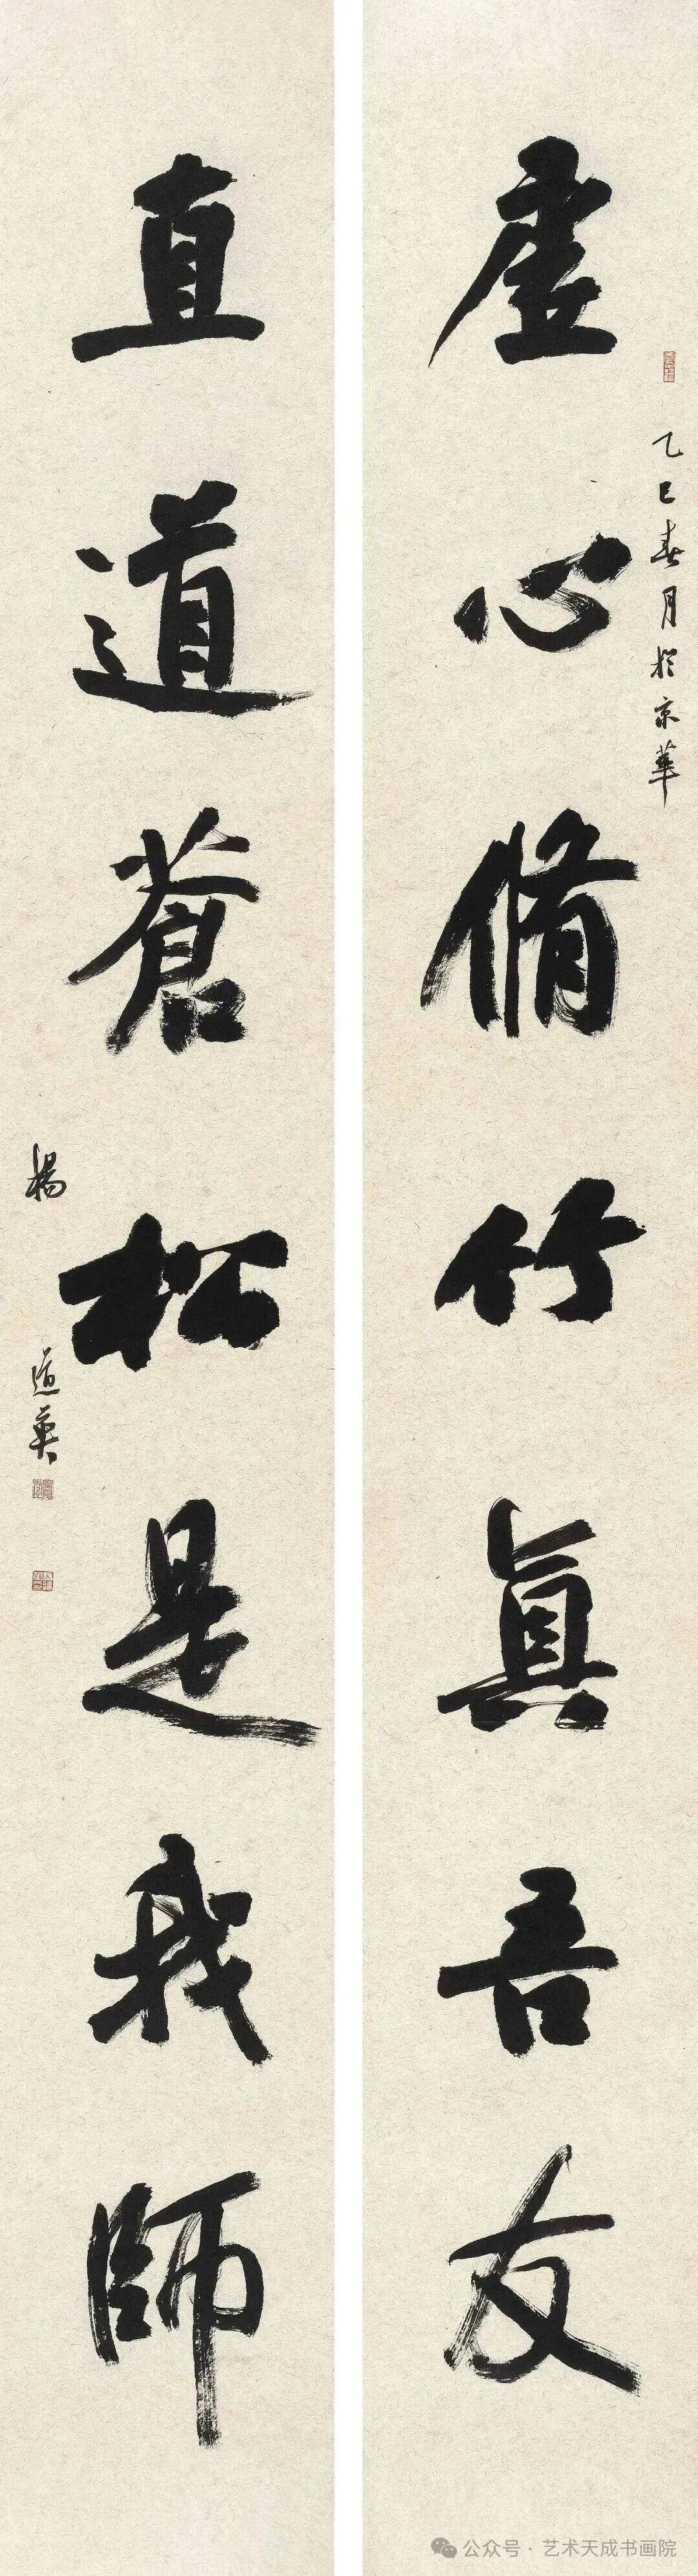 虚心脩竹真吾友
乙巳春月於京華
直道蒼松是我師
楊道英
公众号 · 艺术天成书画院